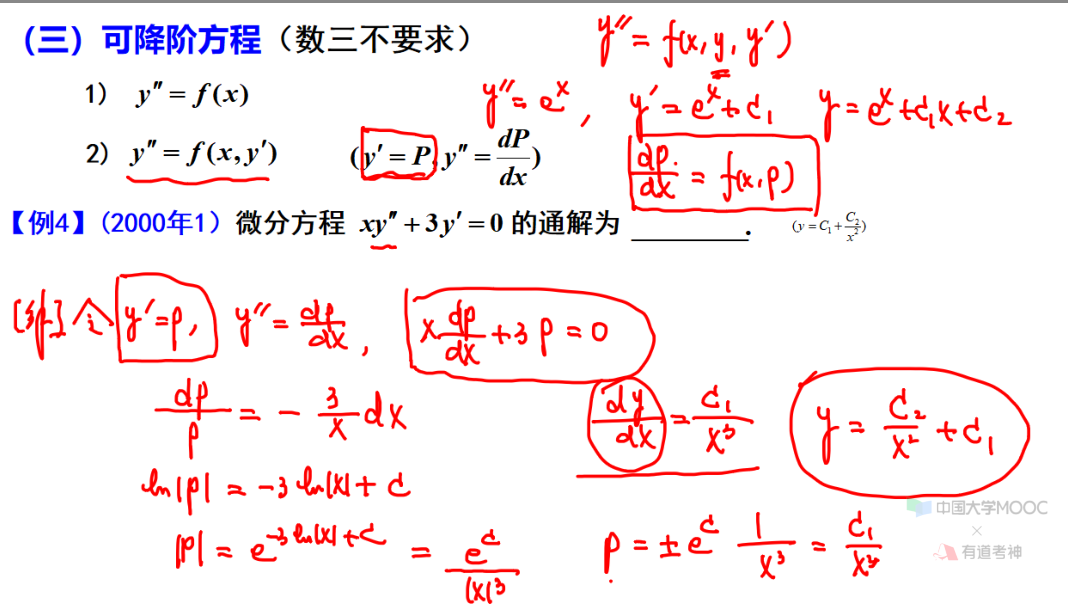 （三）可降阶方程（数三不要求）
y″ = f(x, y, y′)
1） y″ = f(x)
y″ = e^x , y′ = e^x + C₁ y = e^x + C₁x + C₂
2) y″ = f(x, y′) (y′ = P, y″ = dP/dx)
dp/dx = f(x, p)
【例4】(2000年1）微分方程 xy″ + 3y′ = 0 的通解为 ________. (y = C₁ + C₂/x²)
[解] 令 y′ = p, y″ = dp/dx , x dp/dx + 3p = 0
dp/p = − 3/x dx
dy/dx = C₁/x³
y = C₂/x² + C₁
ln|p| = −3 ln|x| + C
|p| = e^(−3 ln|x| + C) = e^C/|x|³
p = ±e^C 1/x³ = C₁/x³
中国大学MOOC
×
有道考神